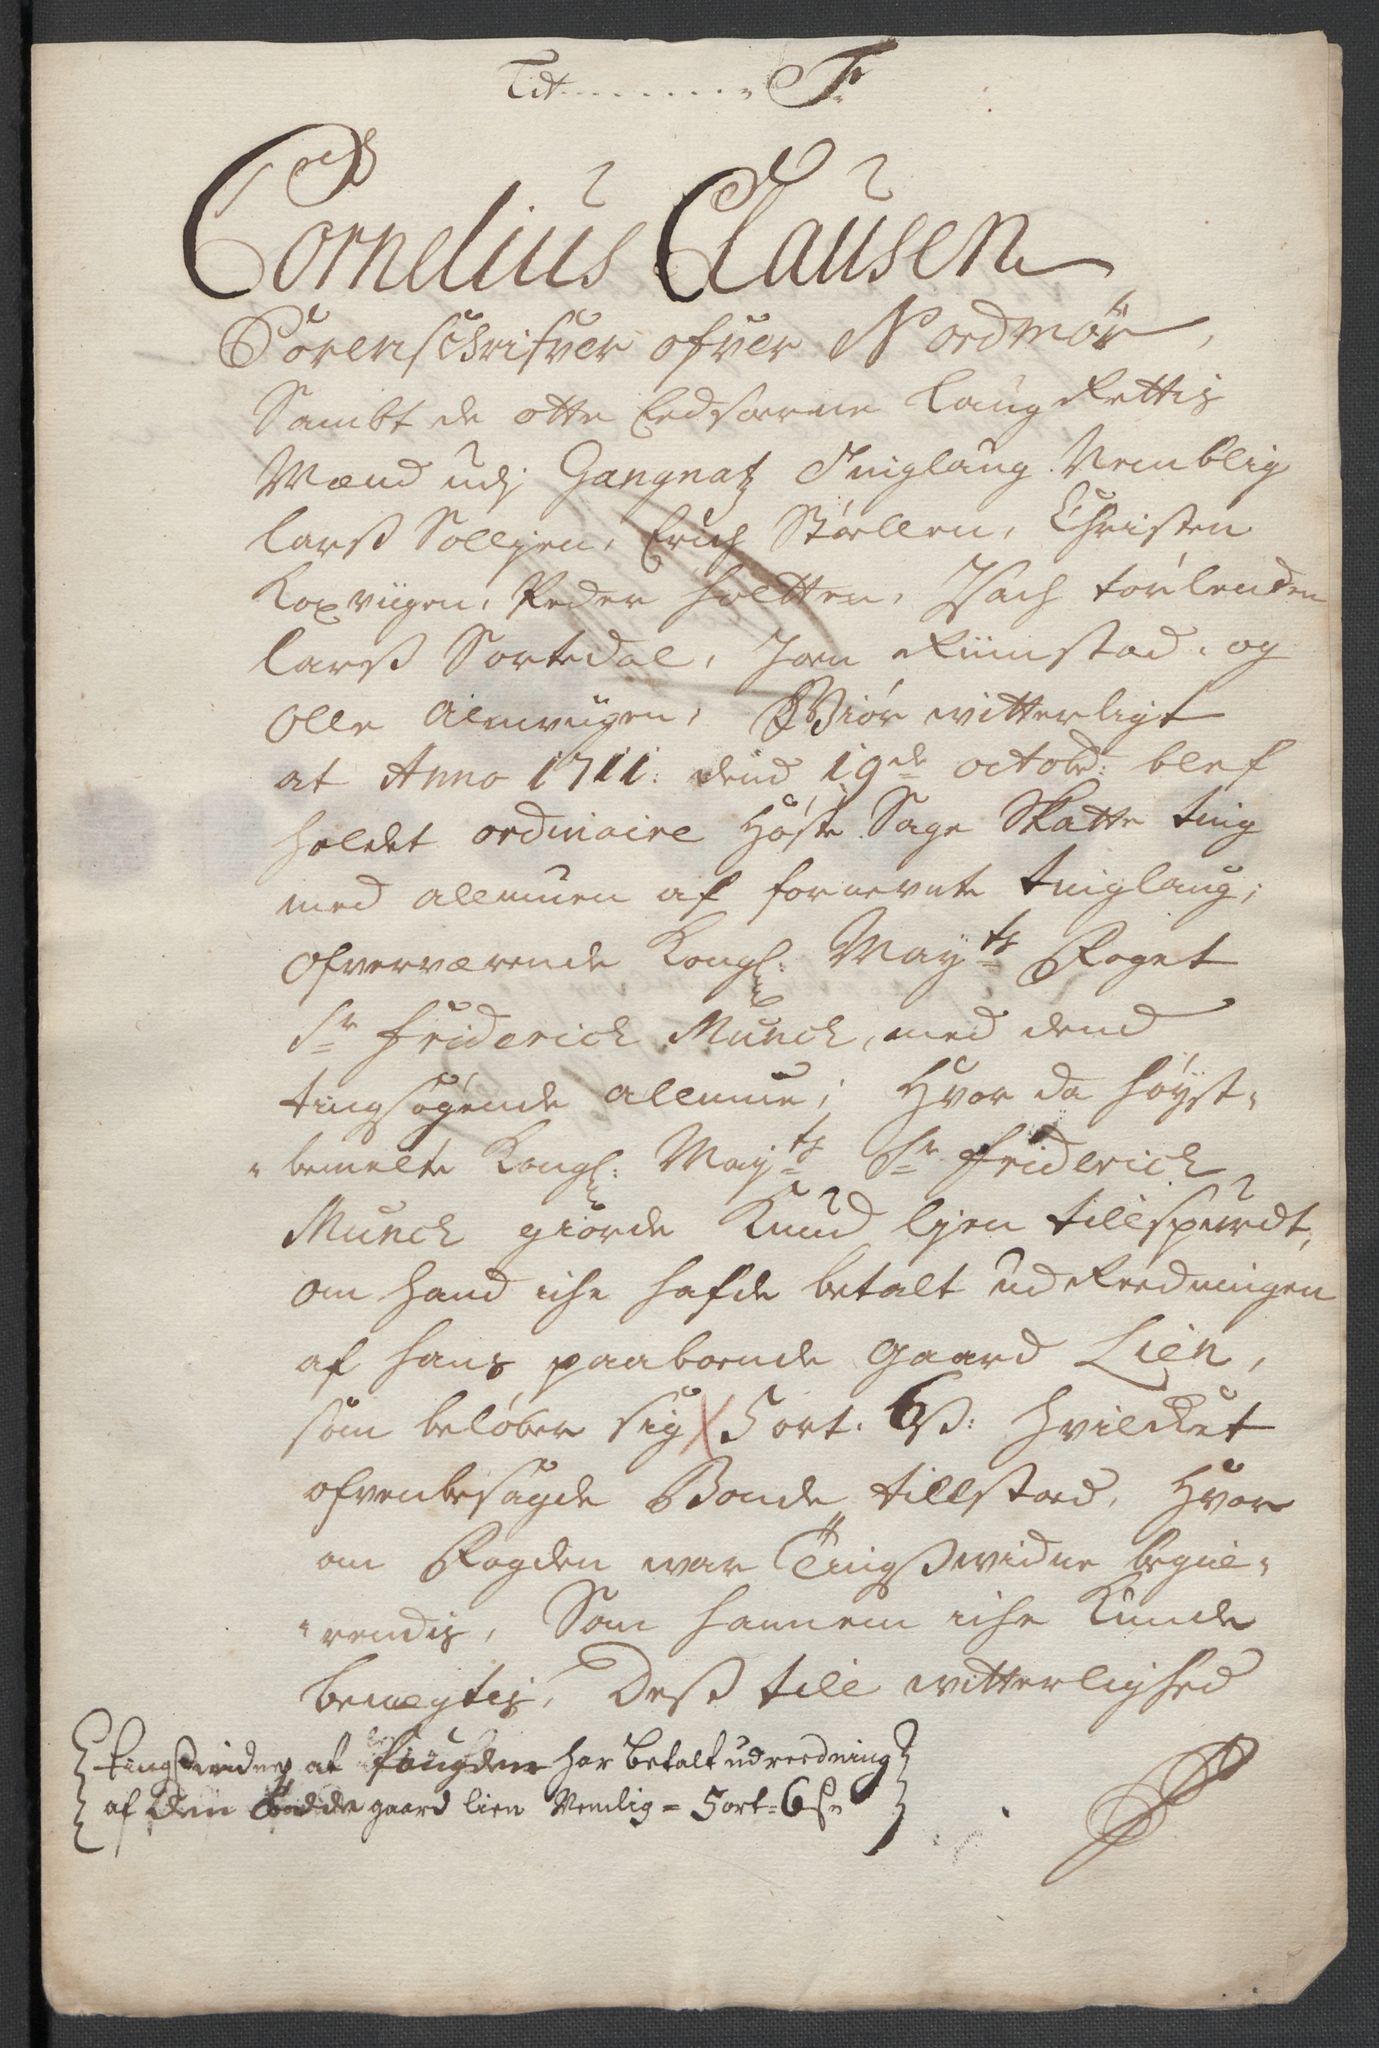 Lit. . . . . . . . F:
Cornelius Clausen
Sorenschrifver ofver Nordmör,
Sambt de otte Eedsorne Laug Rettis
Mænd udj Gangnatz Tinglaug Nemblig
Larß Solljen, Erich Størllen, Christen
Koxviigen, Peder Holtten, Isach
Larß Sortedal, Joen Riimstad, og
Olle Almviigen, Giør witterligt
at Anno 1711. dend 19de octobr: blef
holdet ordinaire Høste Sage Skatte ting
med allmuen af fornevnte tinglaug,
ofverværende Kongl: Mayts Foget
Sr Friderich Munch, med dend
tingsøgende allmue; Hvor da høyst-
bemelte Kongl: Mayts Sr Friderich
Munch giorde Knud Ljen tillspurdt,
om hand iche hafde betalt udReedningen
af hans paaboende Gaard Lien,
som beløber sig 5 ort. 6 ß: Hvilcket
ofvenbesagde Bonde tillstoed, Hvor
om Fogden war Tingßwidne begie-
rendis, Som hannem iche Kunde
benægtis, Deß till witterlighed
tingswidne at fougden har betalt udreedning
af den gaard lien Nemlig = 5 ort = 6 ß